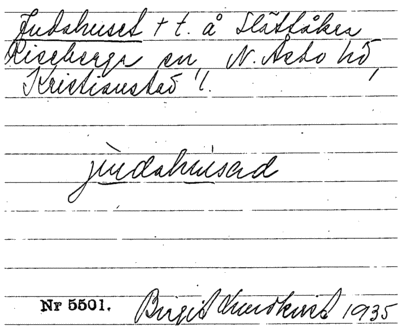 Judahuset t t. å Slättåker
Riseberga sn, N. Åsbo hd,
Kristianstad l.
judahusad
Nr 5501. Birgit Lundkvist 1935